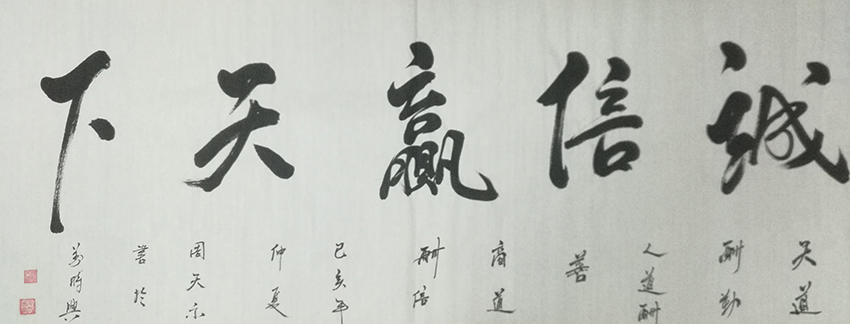 誠信贏天下
天道
酬勤
人道酬
善
商道
酬信
己亥年
仲夏
周天示
書於
時興